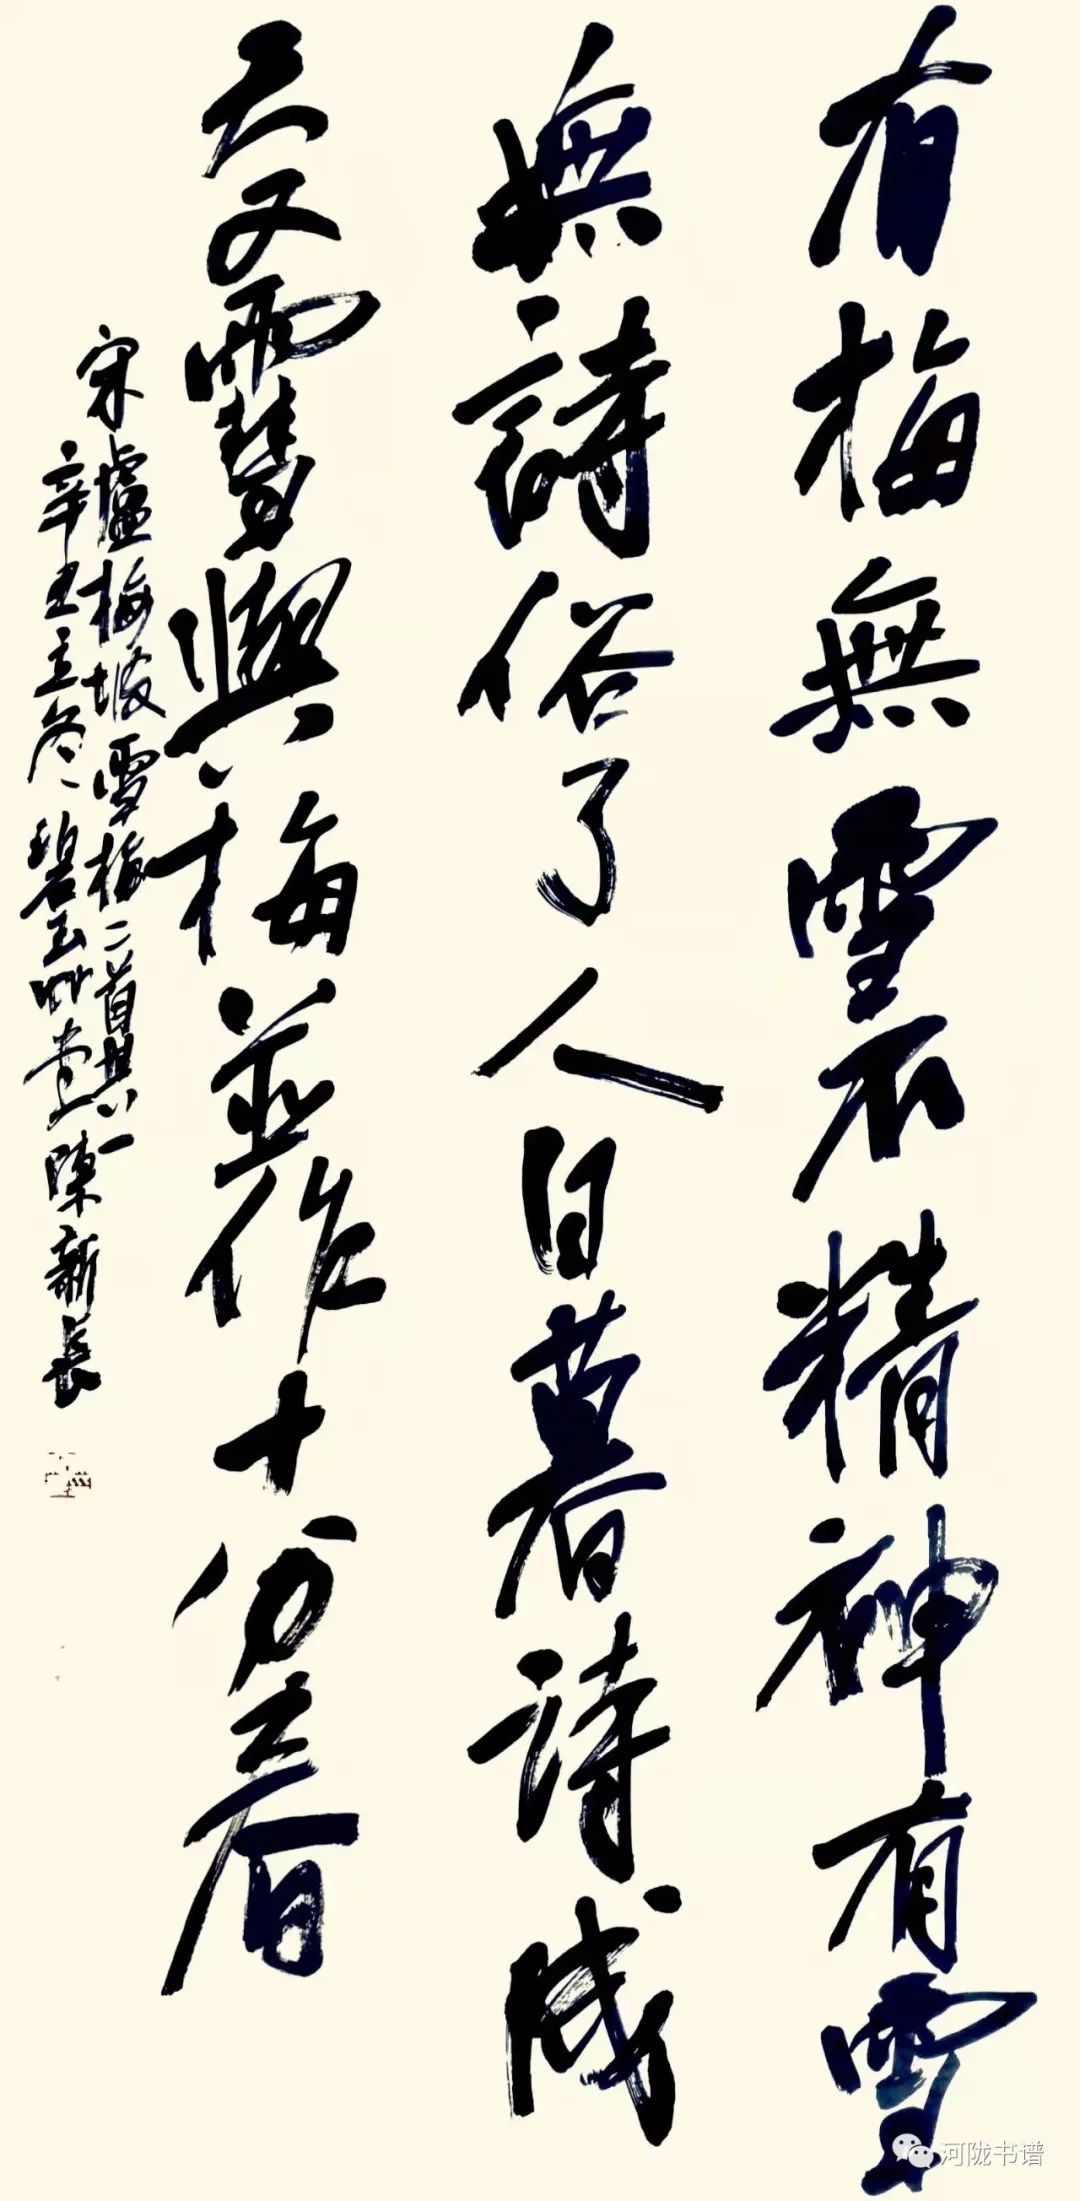 有梅無雪不精神有雪
無詩俗了人日暮詩成
天又雪與梅並作十分春
宋盧梅坡雪梅二首其一
辛丑立冬碧玉草堂陳新長
河陇书谱